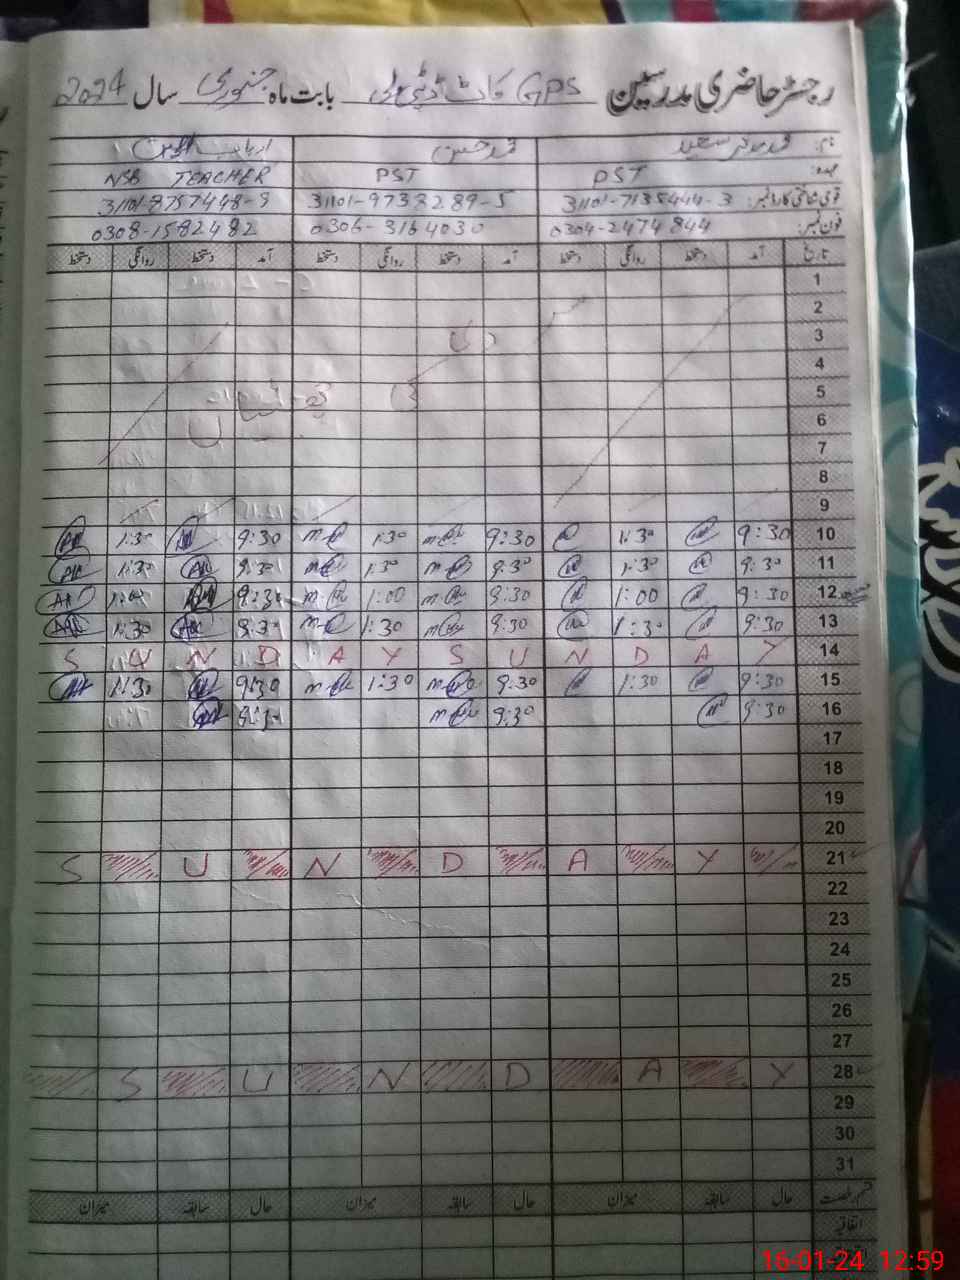 رجسٹر حاضری مدرسین GPS بابت ماہ جنوری سال 2024
نام:
عہدہ: PST PST NSB TEACHER
قومی شناختی کارڈ نمبر: 31101-7135444-3 31101-9733289-5 31101-8757448-9
فون نمبر: 0304-2474844 0306-3164030 0308-1582482
تاریخ آمد دستخط روانگی دستخط آمد دستخط روانگی دستخط آمد دستخط روانگی دستخط
1
2
3
4
5
چھٹیاں
6
7
8
9
10 9:30 1:30 9:30 1:30 9:30 1:30
11 9:30 1:30 9:30 1:30 9:30 1:30
12 9:30 1:00 9:30 1:00 9:30 1:00
13 9:30 1:30 9:30 1:30 9:30 1:30
14 S U N D A Y S U N D A Y
15 9:30 1:30 9:30 1:30 9:30 1:30
16 9:30 9:30 9:30
17
18
19
20
21 S U N D A Y
22
23
24
25
26
27
28 S U N D A Y
29
30
31
قسم رخصت حال سابقہ میزان حال سابقہ میزان حال سابقہ میزان
اتفاقیہ
16-01-24 12:59